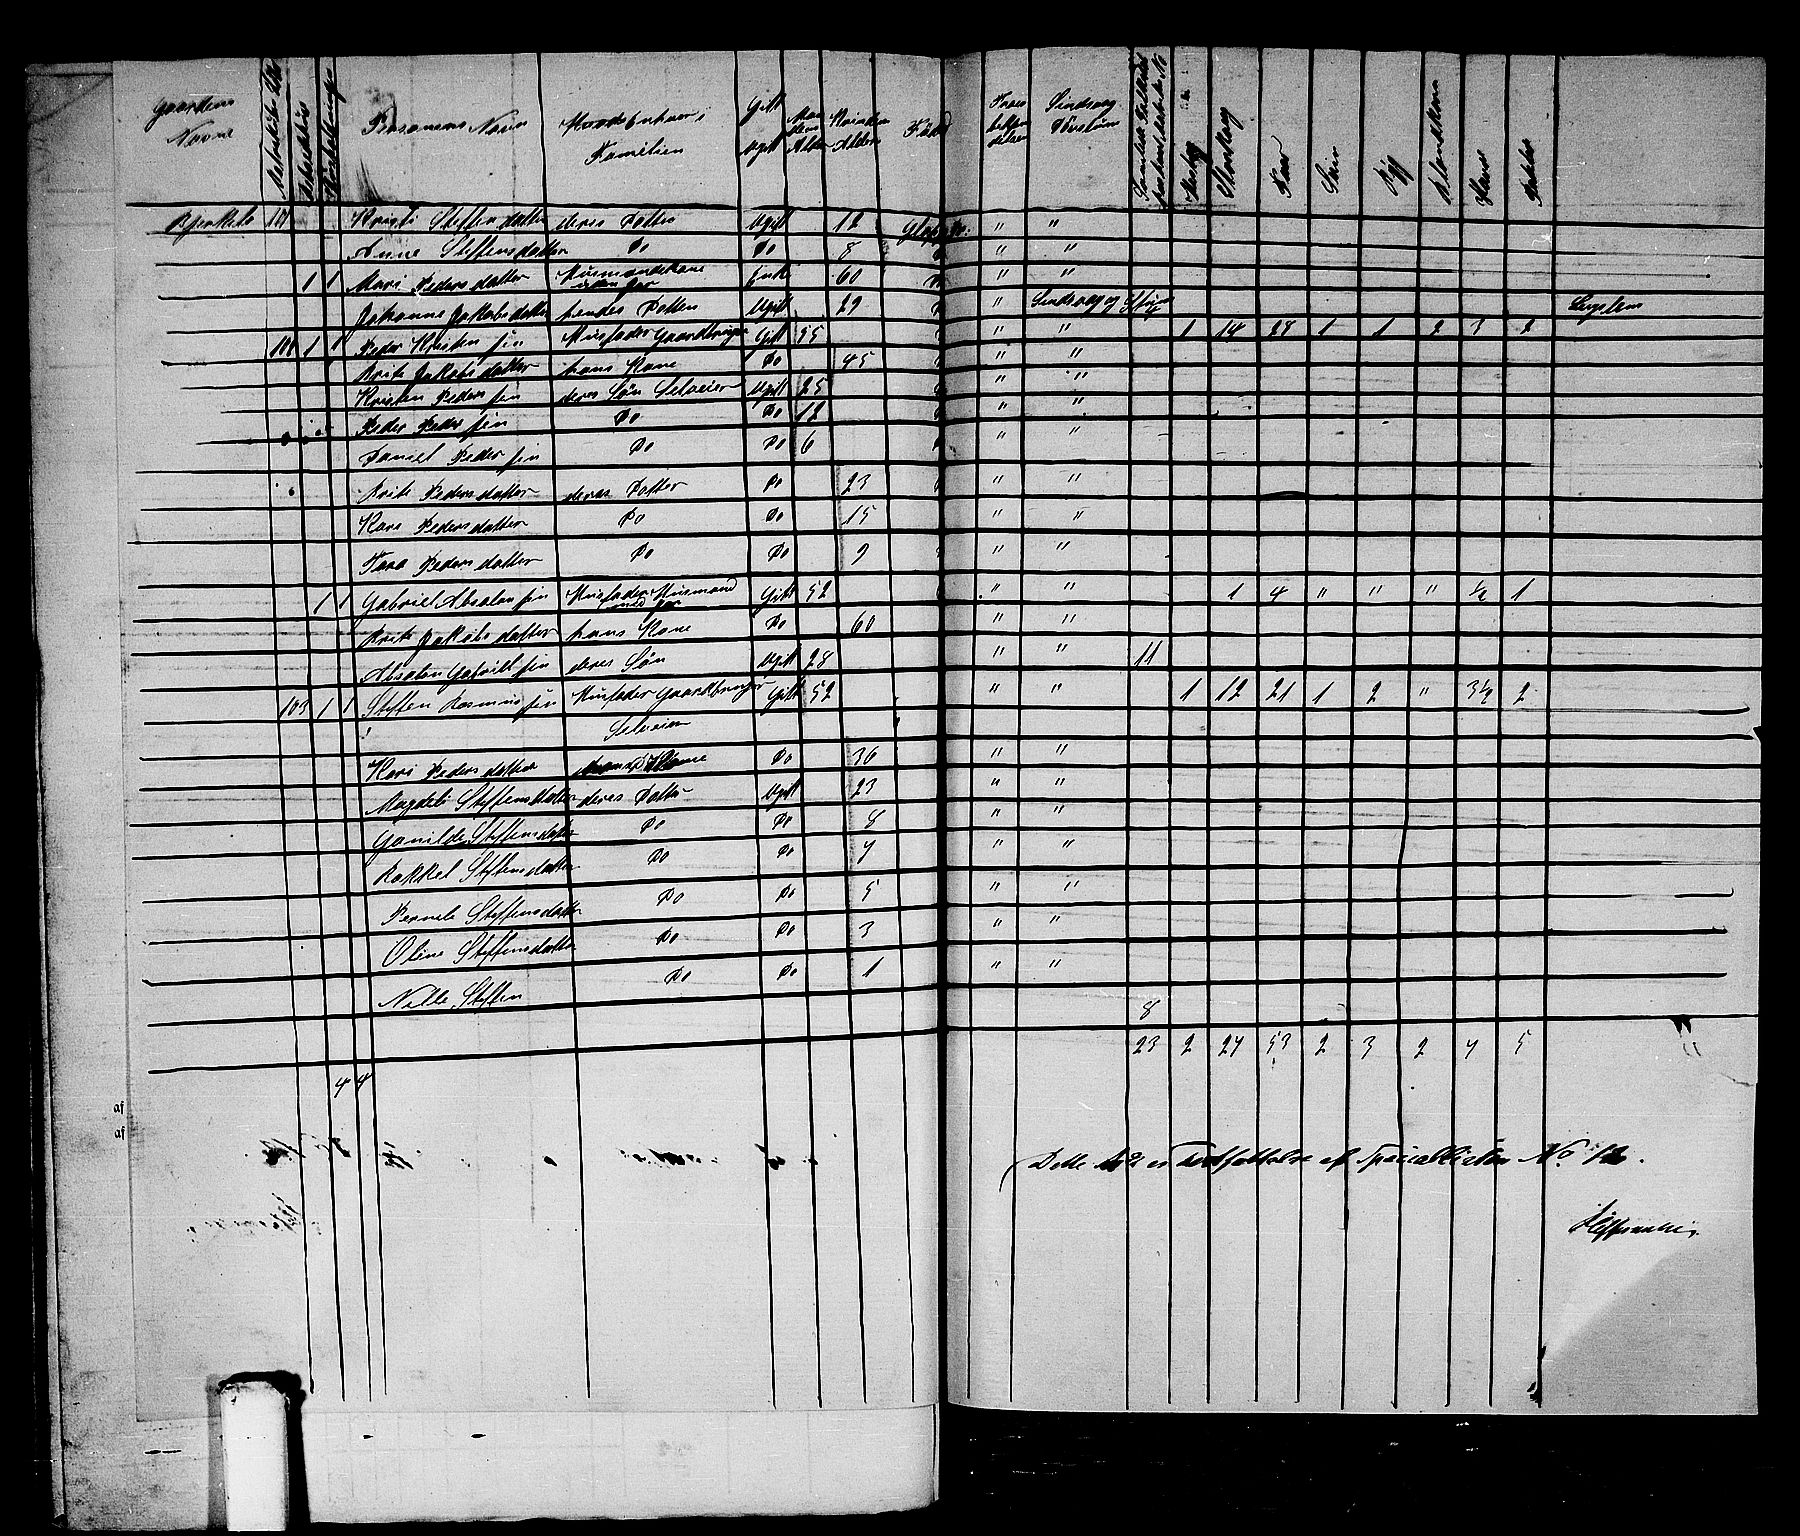 Gaardens Navne Matrikul No Personens Navn Familien Gift Ugift Kvinden Alder Født Sindssvag Døvstum Hester Storkvæg Faar Svin Rug Blandkorn Havre
101 Kristi Steffensdatter deres Datter Ugift 12 " "
Anne Steffensdatter Do Do 8 " "
1 1 Mari Pedersdatter Husmandskone uden jor Enke 60 " "
Johanne Jakobsdatter hendes Datter Ugift 29 " Sindssvag og 4
1 1 Peder Kristensen Husfader Gaardbruger Gift 55 " " 1 14 28 1 1 2 3 2
Brite Jakobsdatter hans Kone Do 45 " "
Kristen Pedersen deres Søn Selveier Ugift 25 " "
Peder Pedersen Do Do 12 " "
Daniel Pedersen Do Do 6 " "
Brite Pedersdatter deres Datter Do 23 " "
Kari Pedersdatter Do Do 15 " "
Pedersdatter Do Do 9 " "
1 1 Gabriel Absalonsen Husfader Husmand med jor Gift 52 " " 1 4 " " " ½ 1
Brite Jakobsdatter hans Kone Do 60 " "
Absalon Gabrielsen deres Søn Ugift 28 " " 11
103 1 1 Steffen Rasmussen Husfader Gaardbruger Gift 52 " " 1 12 21 1 2 " 3½ 2
Selveier
Kari Pedersdatter Kone Do 36 " "
Magdeli Steffensdatter deres Datter Ugift 23 " "
Gunilde Steffensdatter Do Do 8 " "
Rakkel Steffensdatter Do Do 7 " "
Pernele Steffensdatter Do Do 5 " "
Oline Steffensdatter Do Do 3 " "
Nille Steffen Do Do 1 " "
8
23 2 27 53 2 3 2 7 5
4 4
af
af
Dette er Fortsættelse af Speciallisten No 12.